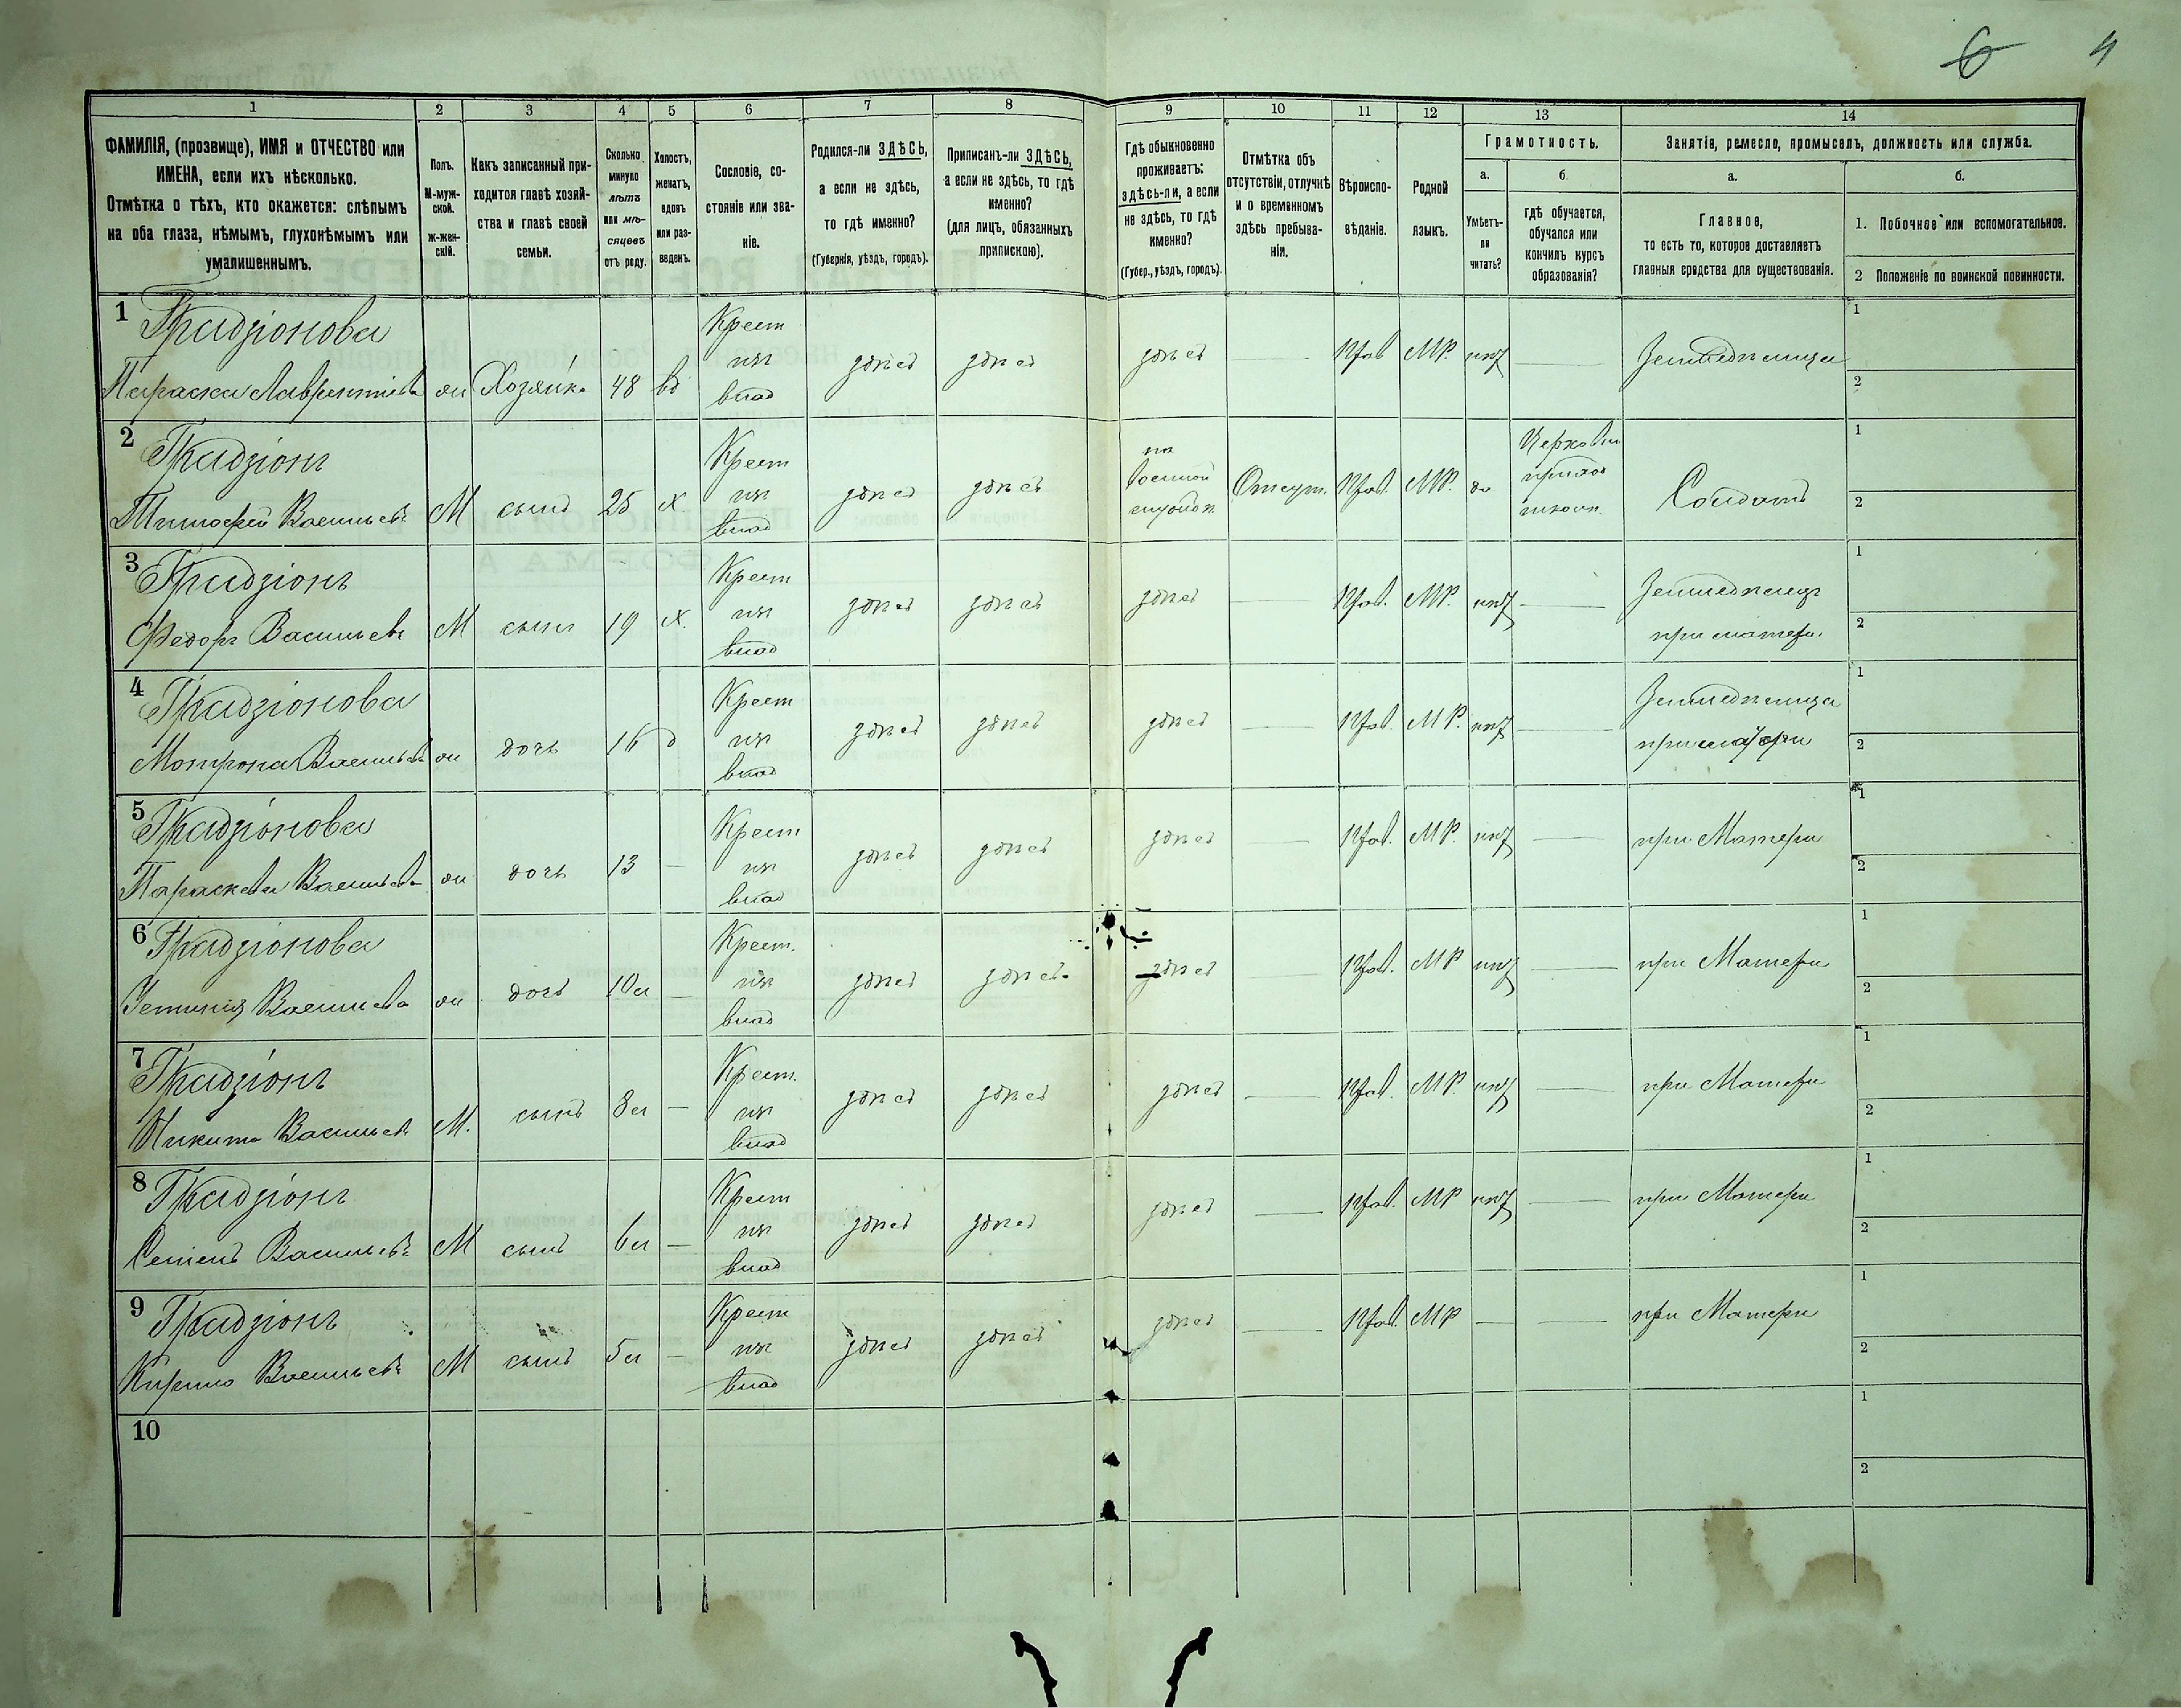 6 4
1 2 3 4 5 6 7 8 9 10 11 12 13 14
ФАМИЛІЯ, (прозвище), ИМЯ и ОТЧЕСТВО или
ИМЕНА, если ихъ нѣсколько.
Отмѣтка о тѣхъ, кто окажется: слѣпымъ
на оба глаза, нѣмымъ, глухонѣмымъ или
умалишеннымъ.
Полъ.
М-муж-
ской.
ж-жен-
скій.
Какъ записанный при-
ходится главѣ хозяй-
ства и главѣ своей
семьи.
Сколько
минуло
лѣтъ
или мѣ-
сяцевъ
отъ роду.
Холостъ,
женатъ,
вдовъ
или раз-
веденъ.
Сословіе, со-
стояніе или зва-
ніе.
Родился-ли ЗДѢСЬ,
а если не здѣсь,
то гдѣ именно?
(Губернія, уѣздъ, городъ).
Приписанъ-ли ЗДѢСЬ,
а если не здѣсь, то гдѣ
именно?
(для лицъ, обязанныхъ
припискою).
Гдѣ обыкновенно
проживаетъ:
здѣсь-ли, а если
не здѣсь, то гдѣ
именно?
(Губер., уѣздъ, городъ).
Отмѣтка объ
отсутствіи, отлучкѣ
и о временномъ
здѣсь пребыва-
ніи.
Вѣроиспо-
вѣданіе.
Родной
языкъ.
Грамотность.
а.
Умѣетъ-
ли
читать?
б.
гдѣ обучается,
обучался или
кончилъ курсъ
образованія?
Занятіе, ремесло, промыселъ, должность или служба.
а.
Главное,
то есть то, которое доставляетъ
главныя средства для существованія.
б.
1. Побочное или вспомогательное.
2 Положеніе по воинской повинности.
1 Крест 1
изъ здѣсь здѣсь здѣсь — Прав МР. нѣтъ — Земледѣлица
Параска Лаврентіева ж Хозяйка 48 вд влад 2
2 Крест на Церковн 1
изъ здѣсь здѣсь военной Отсут. Прав. МР. да приход Солдатъ
Тимофей Васильевъ М сынъ 25 х влад службѣ школѣ 2
3 Крест Земледѣлецъ 1
изъ здѣсь здѣсь здѣсь — Прав. МР. нѣтъ — при матери
Федоръ Васильевъ М сынъ 19 х. влад 2
4 Крест Земледѣлица 1
изъ здѣсь здѣсь здѣсь — Прав. МР. нѣтъ — при матери
Мотрона Васильева ж дочь 16 д влад 2
5 Крест 1
изъ здѣсь здѣсь здѣсь — Прав. МР. нѣтъ — при Матери
Параскева Васильева ж дочь 13 — влад 2
6 Крест. 1
изъ здѣсь здѣсь здѣсь — Прав. МР нѣтъ — при Матери
Устинія Васильева ж дочь 10л — влад 2
7 Крест. 1
изъ здѣсь здѣсь здѣсь — Прав. МР. нѣтъ — при Матери
Никита Васильевъ М. сынъ 8л — влад 2
8 Крест 1
изъ здѣсь здѣсь здѣсь — Прав. МР нѣтъ — при Матери
Семенъ Васильевъ М сынъ 6л — влад 2
9 Крест 1
изъ здѣсь здѣсь здѣсь — Прав. МР — — при Матери
Кирило Васильевъ М сынъ 5л — влад 2
10 1
2